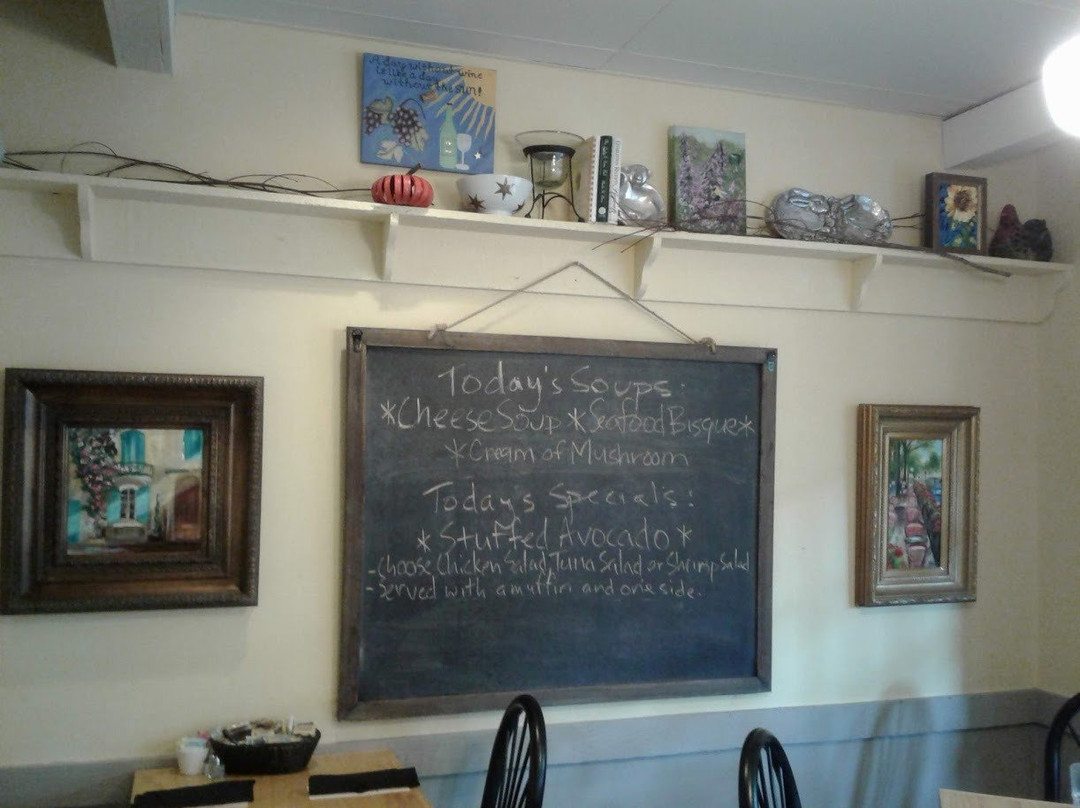 A day without wine
is like a day
without the sun!
Today's Soups:
*Cheese Soup *Seafood Bisque*
*Cream of Mushroom
Today's Specials:
*Stuffed Avocado*
-choose Chicken Salad, Tuna Salad or Shrimp Salad
-Served with a muffin and one side.